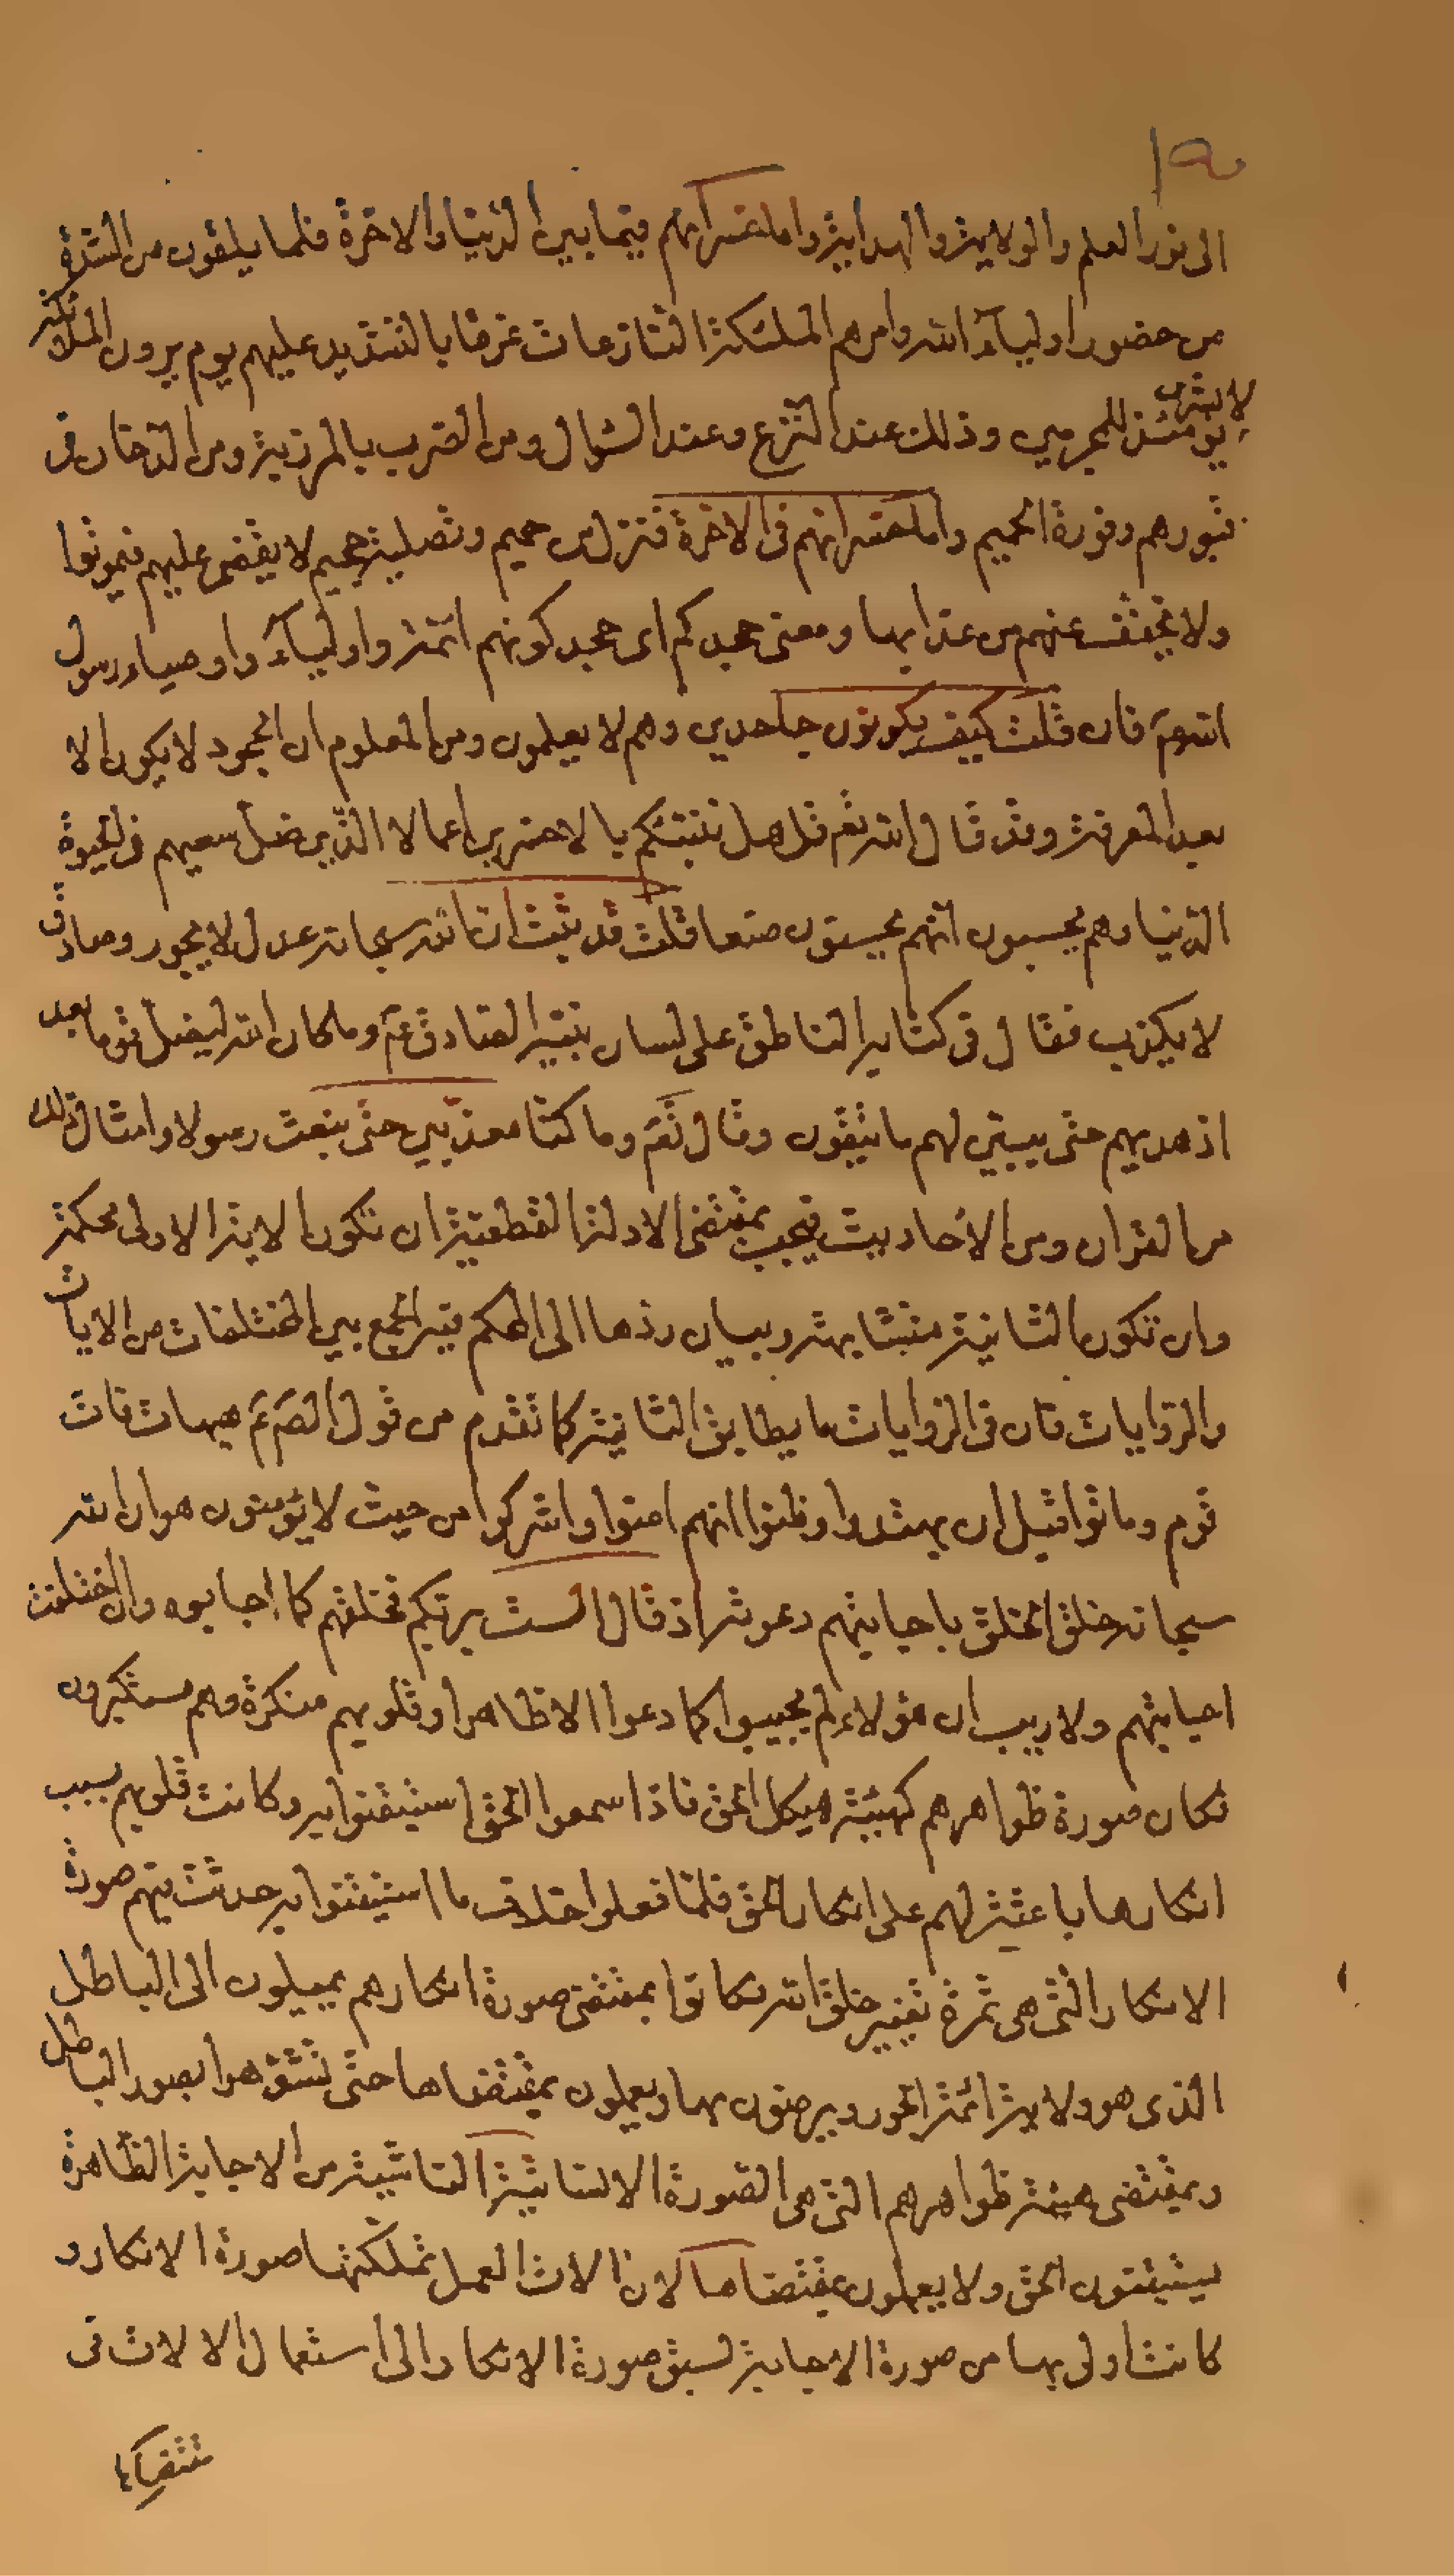 الى نور العلم والولاية والهداية واما خسرانهم فيما بين الدنيا والاخرة فلما يلقون من الشدة
من حضور اولياء الله وامرهم الملئكة النازعات غرقا بالتشديد عليهم يوم يرون الملئكة
لا بشرى يومئذ للمجرمين وذلك عند النزع وعند السؤال ومن الضرب بالمرزبة ومن الدخان في
قبورهم وفورة الحميم واما خسرانهم في الاخرة فنزل من حميم وتصلية جحيم لا يقضى عليهم فيموتوا
ولا يخفف عنهم من عذابها ومعنى جحدكم اى جحد كونهم ائمة واولياء واوصياء رسول
الله ص فان قلت كيف يكونون جاحدين وهم لا يعلمون ومن المعلوم ان الجحود لا يكون الا
بعد المعرفة وقد قال الله تعم قل هل ننبئكم بالاخسرين اعمالا الذين ضل سعيهم في الحيوة
الدنيا وهم يحسبون انهم يحسنون صنعا قلت قد ثبت ان الله سبحانه عدل لا يجور وصادق
لا يكذب فقال في كتابه الناطق على لسان نبيه الصادق عم وما كان الله ليضل قوما بعد
اذ هديهم حتى يبين لهم ما يتقون وقال تعم وما كنا معذبين حتى نبعث رسولا وامثال ذلك
من القران ومن الأحاديث فيجب بمقتضى الادلة القطعية ان تكون الاية الاولى محكمة
وان تكون الثانية متشابهة وبيان ردها الى المحكم فيه الجمع بين المختلفات من الايات
والروايات فان في الروايات ما يطابق الثانية كما تقدم من قول الصم عم هيهات فات
قوم وماتوا قبل ان يهتدوا وظنوا انهم امنوا واشركوا من حيث لا يؤمنون هو ان الله
سبحانه خلق الخلق باجابتهم دعوته اذ قال الست بربكم فخلقهم كما اجابوه وان اختلفت
اجابتهم ولا ريب ان هؤلاء لم يجيبوا كما دعوا الا ظاهرا وقلوبهم منكرة وهم مستكبرون
فكان صورة ظواهرهم كهيئة هيكل الحق فاذا سمعوا الحق استيقنوا به وكانت قلوبهم بسبب
انكارها باعثة لهم على انكار الحق فلما فعلوا خلاف ما استيقنوا به حدثت فيهم صورة
الانكار التى هى ثمرة تغيير خلق الله فكانوا بمقتضى صورة انكارهم يميلون الى الباطل
الذى هو ولاية ائمة الجور ويرضون بها ويعملون بمقتضاها حتى تشوهوا بصور الباطل
وبمقتضى هيئة ظواهرهم التى هى الصورة الانسانية الناشية من الاجابة الظاهرة
يستيقنون الحق ولا يعملون بمقتضاها لان الات العمل تملكتها صورة الانكار و
كانت اولى بها من صورة الاجابة لسبق صورة الانكار الى استعمال الالات في